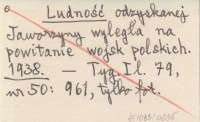 Ludność odzyskanej
Jaworzyny wyległa na
powitanie wojsk polskich.
1938. — Tyg. Il. 79,
nr 50: 961, tylko fot.